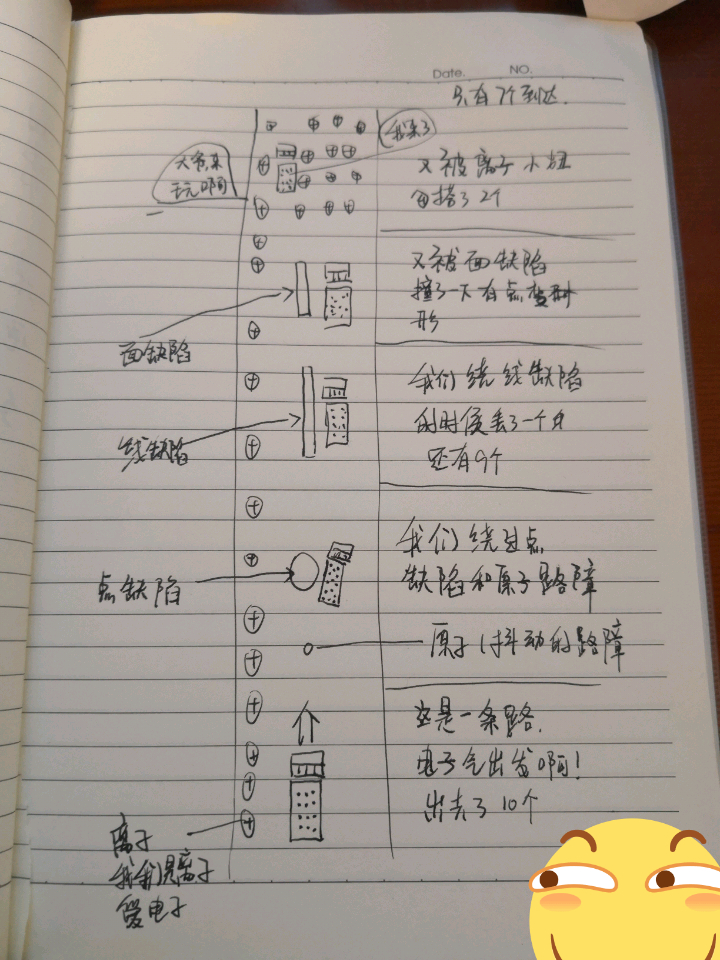 Date.
NO.
只有7个到达.
我来了
大爷来
玩啊
又被离子小妞
勾搭了2个
又被面缺陷
撞了一下有点变形
形
面缺陷
我们绕线缺陷
的时候丢了一个
还有9个
线缺陷
我们绕过点
缺陷和原子路障
点缺陷
原子(抖动的路障
这是一条路.
电子气出发啊!
出去了10个
离子
我们是离子
爱电子